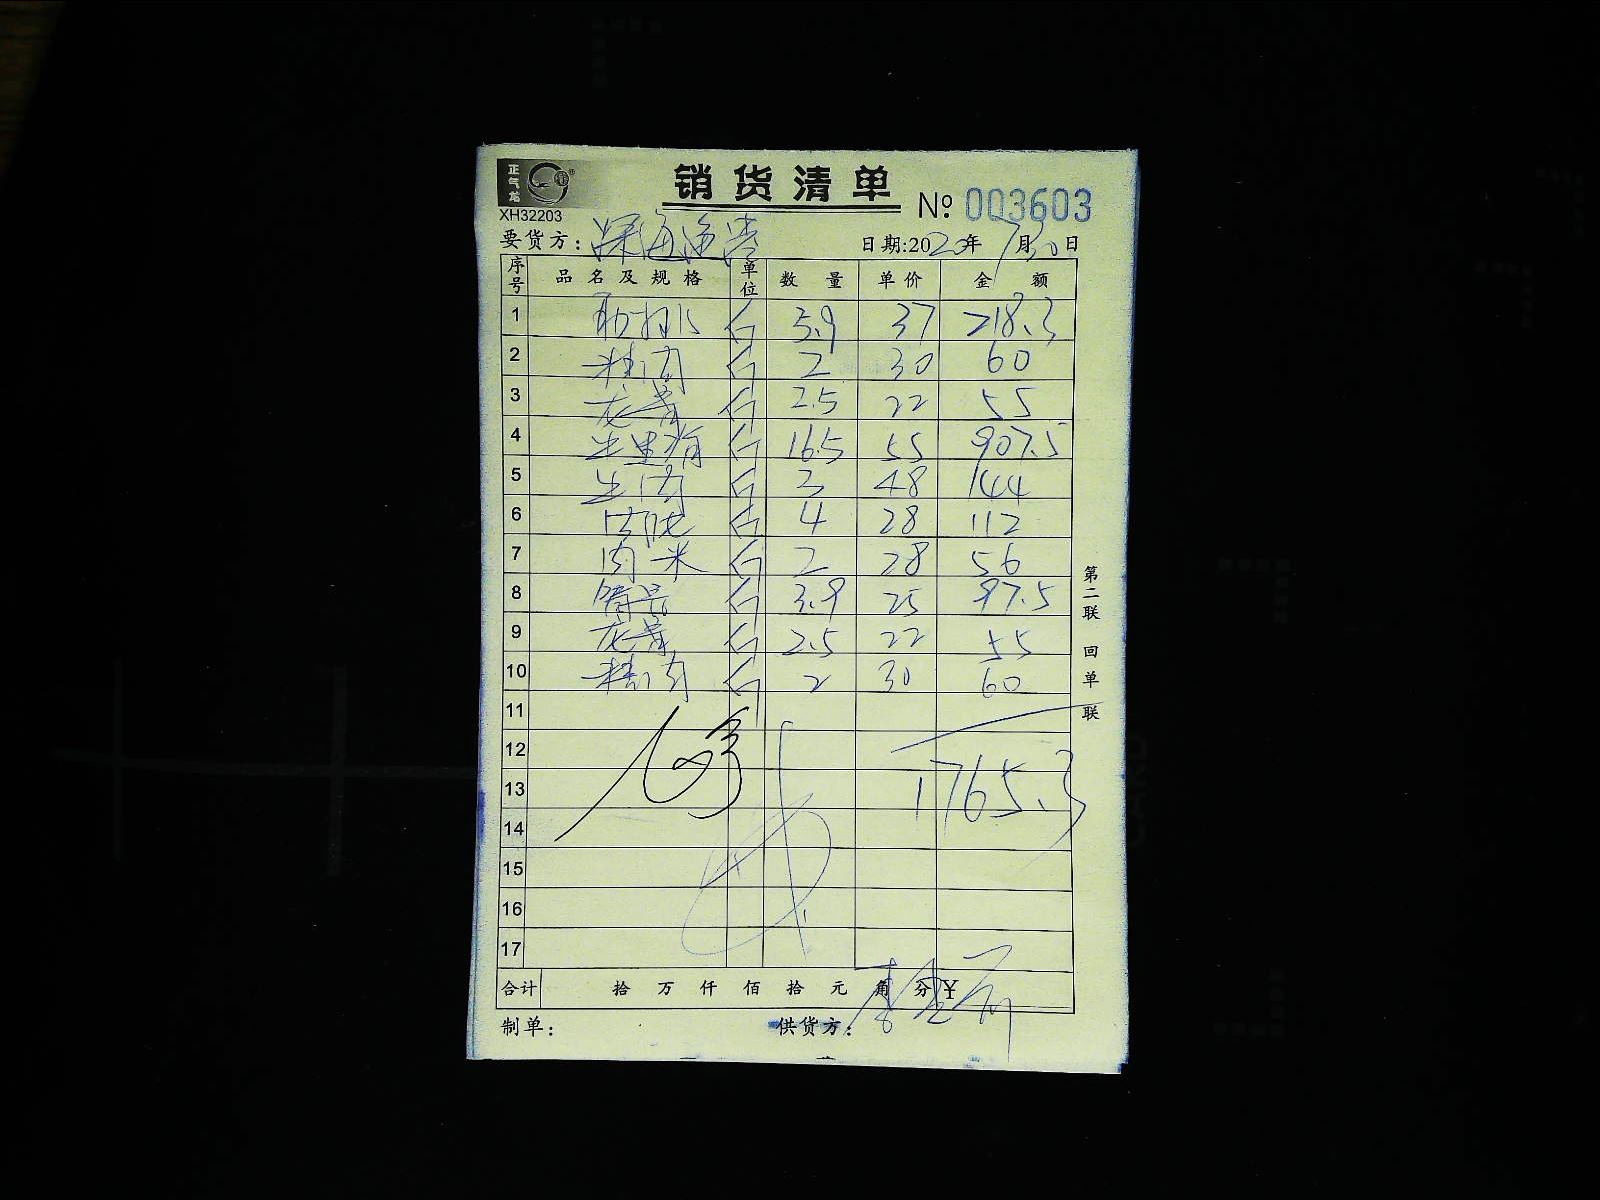 正气龙
销货清单
XH32203
№ 003603
要货方: 深海渔港 日期:2020年7月30日
序号 品名及规格 单位 数量 单价 金额
1 肋排 斤 5.9 37 218.3
2 精肉 斤 2 30 60
3 龙骨 斤 2.5 22 55
4 牛里脊 斤 16.5 55 907.5
5 牛肉 斤 3 48 144
6 斤 4 28 112
7 肉米 斤 2 28 56
8 斤 3.9 25 97.5
9 龙骨 斤 2.5 22 55
10 精肉 斤 2 30 60
11
12
13 1765.3
14
15
16
17
合计 拾 万 仟 佰 拾 元 角 分 ¥
制单: 供货方:
第二联 回单联